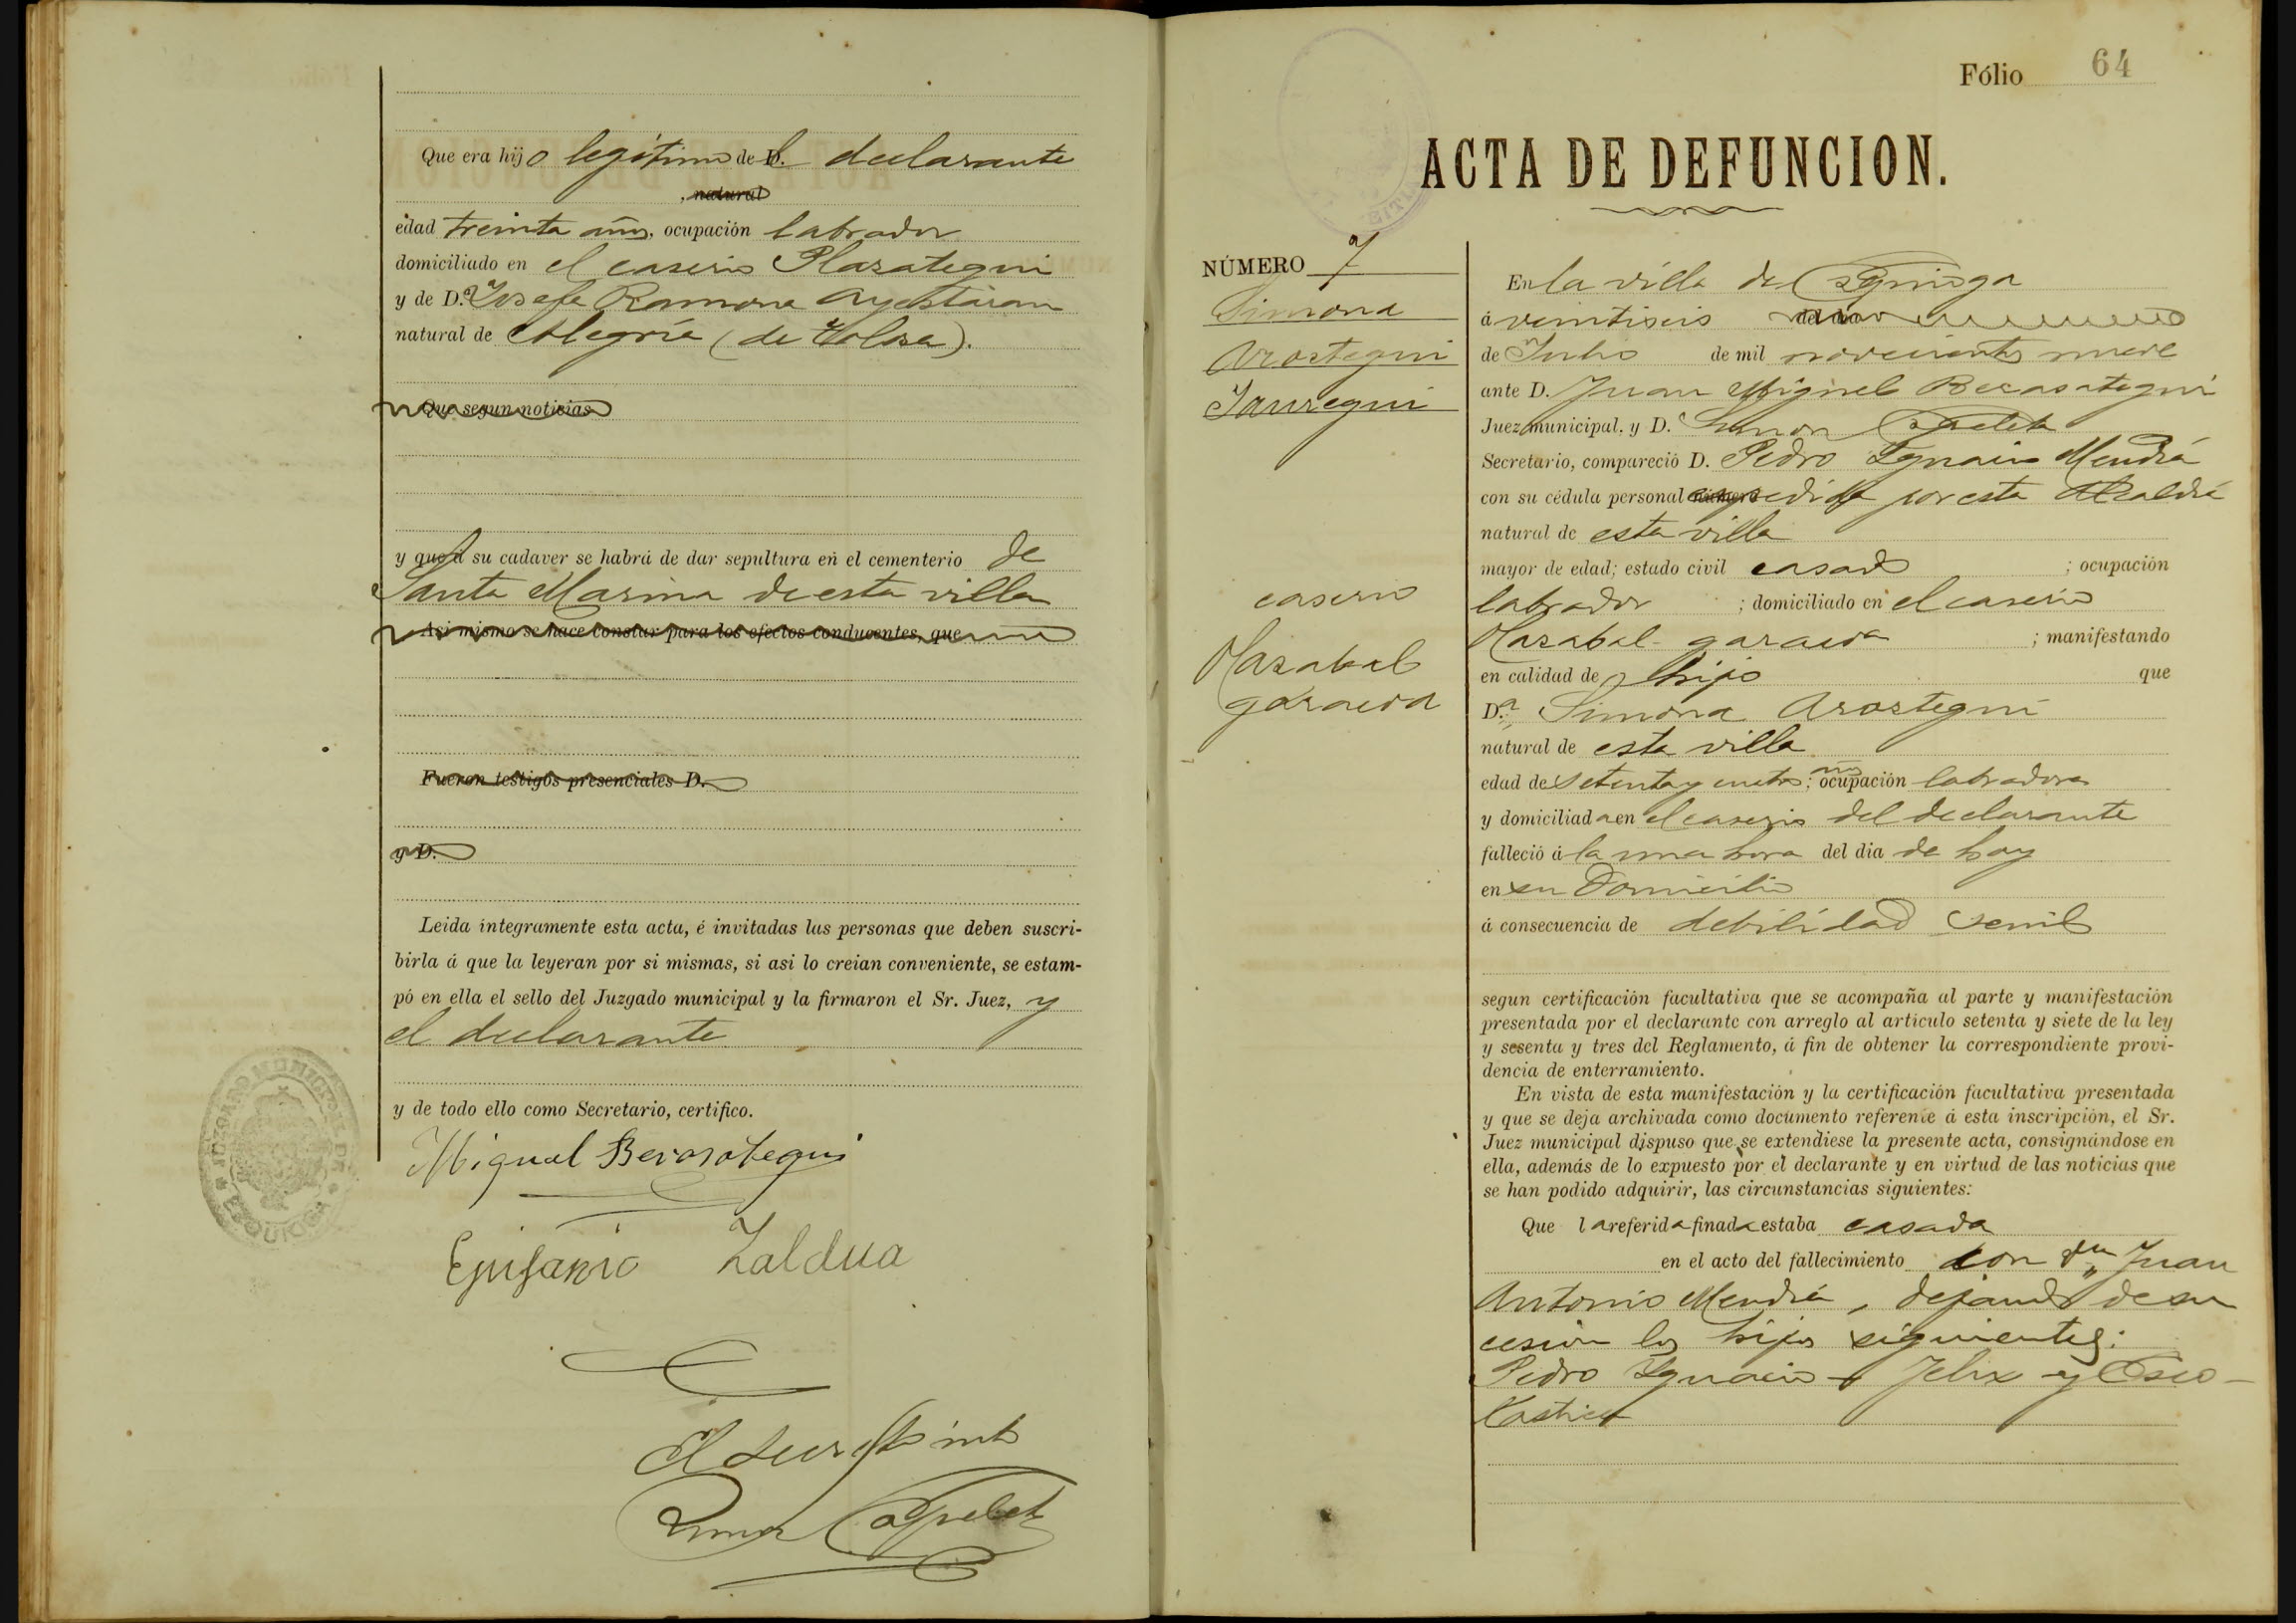 Que era hijo legítimo de D.l declarante
natural
edad treinta años, ocupación labrador
domiciliado en el caserio Olazategui
y de D.ª Josefa Ramona Ayestaran
natural de Alegría (de Tolosa).
Que segun noticias
y que á su cadaver se habrá de dar sepultura en el cementerio de
Santa Marina de esta villa
Asi mismo se hace constar para los efectos conducentes, que
Fueron testigos presenciales D.
y D.
Leida íntegramente esta acta, é invitadas las personas que deben suscri-
birla á que la leyeran por si mismas, si asi lo creian conveniente, se estam-
pó en ella el sello del Juzgado municipal y la firmaron el Sr. Juez, y
el declarante
y de todo ello como Secretario, certifico.
JUZGADO MUNICIPAL DE EZQUIOGA
Miguel Berasategui
Epifanio Zaldua
El Secretario
Fólio 64
ACTA DE DEFUNCION.
NÚMERO 7
Simona
Arostegui
Jauregui
caserio
Olazabal
garaicoa
En la villa de Ezquioga
á veintiseis del dia
de Julio de mil novecientos nueve
ante D. Juan Miguel Berasategui
Juez municipal, y D. Simon
Secretario, compareció D. Pedro Ygnacio Mendia
con su cédula personal número expedida por esta Alcaldia
natural de esta villa
mayor de edad; estado civil casado ; ocupación
labrador ; domiciliado en el caserio
Olazabal garaicoa ; manifestando
en calidad de hijo que
D.ª Simona Arostegui
natural de esta villa
edad de setenta y cuatro años; ocupación labradora
y domiciliada en el caserio del declarante
falleció á la una hora del dia de hoy
en su Domicilio
á consecuencia de debilidad senil
segun certificación facultativa que se acompaña al parte y manifestación
presentada por el declarante con arreglo al articulo setenta y siete de la ley
y sesenta y tres del Reglamento, á fin de obtener la correspondiente provi-
dencia de enterramiento.
En vista de esta manifestación y la certificación facultativa presentada
y que se deja archivada como documento referente á esta inscripción, el Sr.
Juez municipal dispuso que se extendiese la presente acta, consignándose en
ella, además de lo expuesto por el declarante y en virtud de las noticias que
se han podido adquirir, las circunstancias siguientes:
Que la referida finada estaba casada
en el acto del fallecimiento con dn Juan
Antonio Mendia, dejando de su
cesion los hijos siguientes:
Pedro Ygnacio - Felix y Esco-
lastica